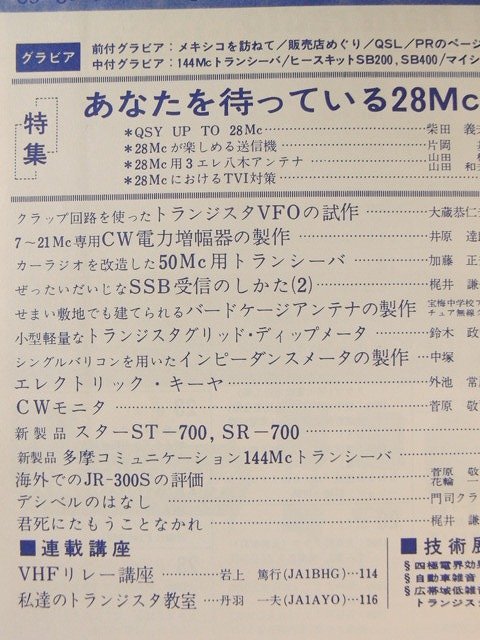 グラビア
前付グラビア：メキシコを訪ねて／販売店めぐり／QSL／PRのページ
中付グラビア：144Mcトランシーバ／ヒースキットSB200, SB400／マイシ
特集
あなたを待っている28Mc
＊QSY UP TO 28Mc 柴田 義
＊28Mcが楽しめる送信機 片岡
＊28Mc用3エレ八木アンテナ 山田
山田 和
＊28McにおけるTVI対策
クラップ回路を使ったトランジスタVFOの試作 大蔵恭仁
7～21Mc専用CW電力増幅器の製作 井原 達
カーラジオを改造した50Mc用トランシーバ 加藤 正
ぜったいだいじなSSB受信のしかた(2) 梶井 謙
せまい敷地でも建てられるバードケージアンテナの製作 宝梅中学校ア
チュア無線ク
小型軽量なトランジスタグリッド・ディップメータ 鈴木 政
シングルバリコンを用いたインピーダンスメータの製作 中塚
エレクトリック・キーヤ 外池 常
CWモニタ 菅原 敬
新製品 スターST－700, SR－700
新製品 多摩コミュニケーション144Mcトランシーバ
海外でのJR-300Sの評価 菅原 敬
花輪 一
デシベルのはなし 門司クラ
君死にたもうことなかれ 梶井 謙
■連載講座
VHFリレー講座 岩上 篤行(JA1BHG)…114
私達のトランジスタ教室 丹羽 一夫(JA1AYO)…116
■技術展
§四極電界効
§自動車雑音
§広帯域低雑音
トランジス